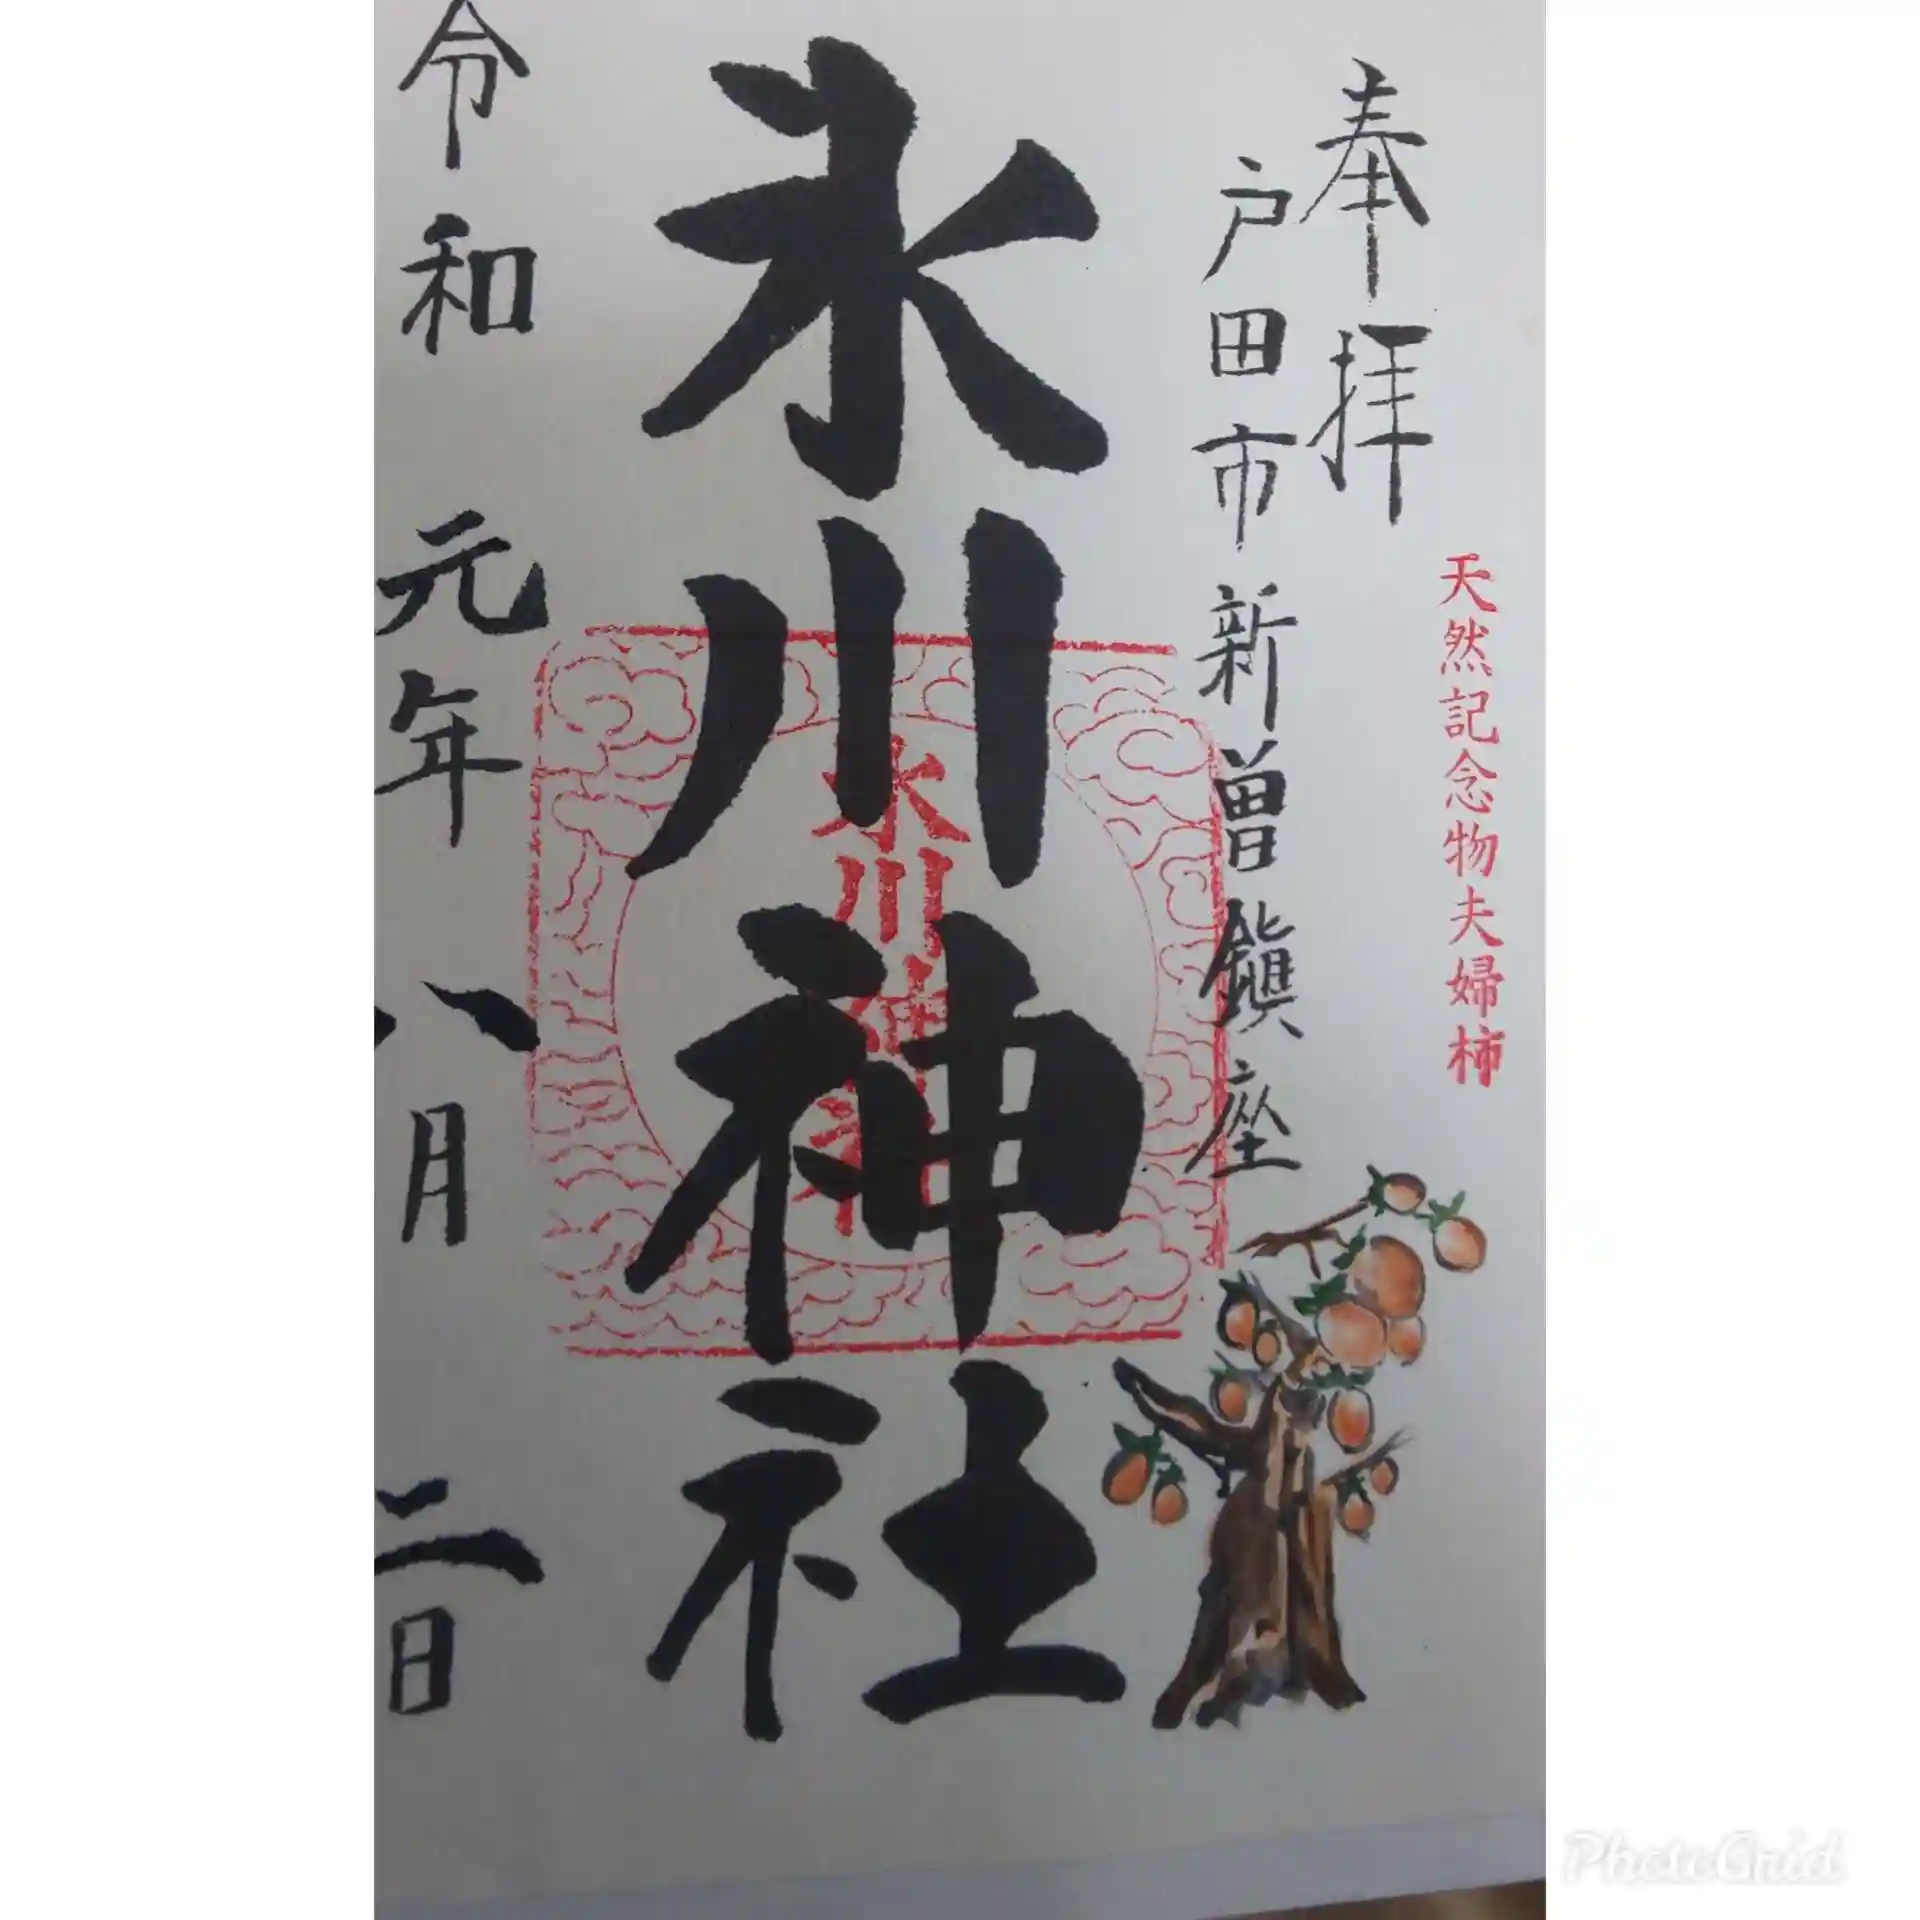 天然記念物夫婦柿
奉拝
戸田市新曽鎮座
氷川神社
氷川神社
令和元年八月二日
PhotoGrid